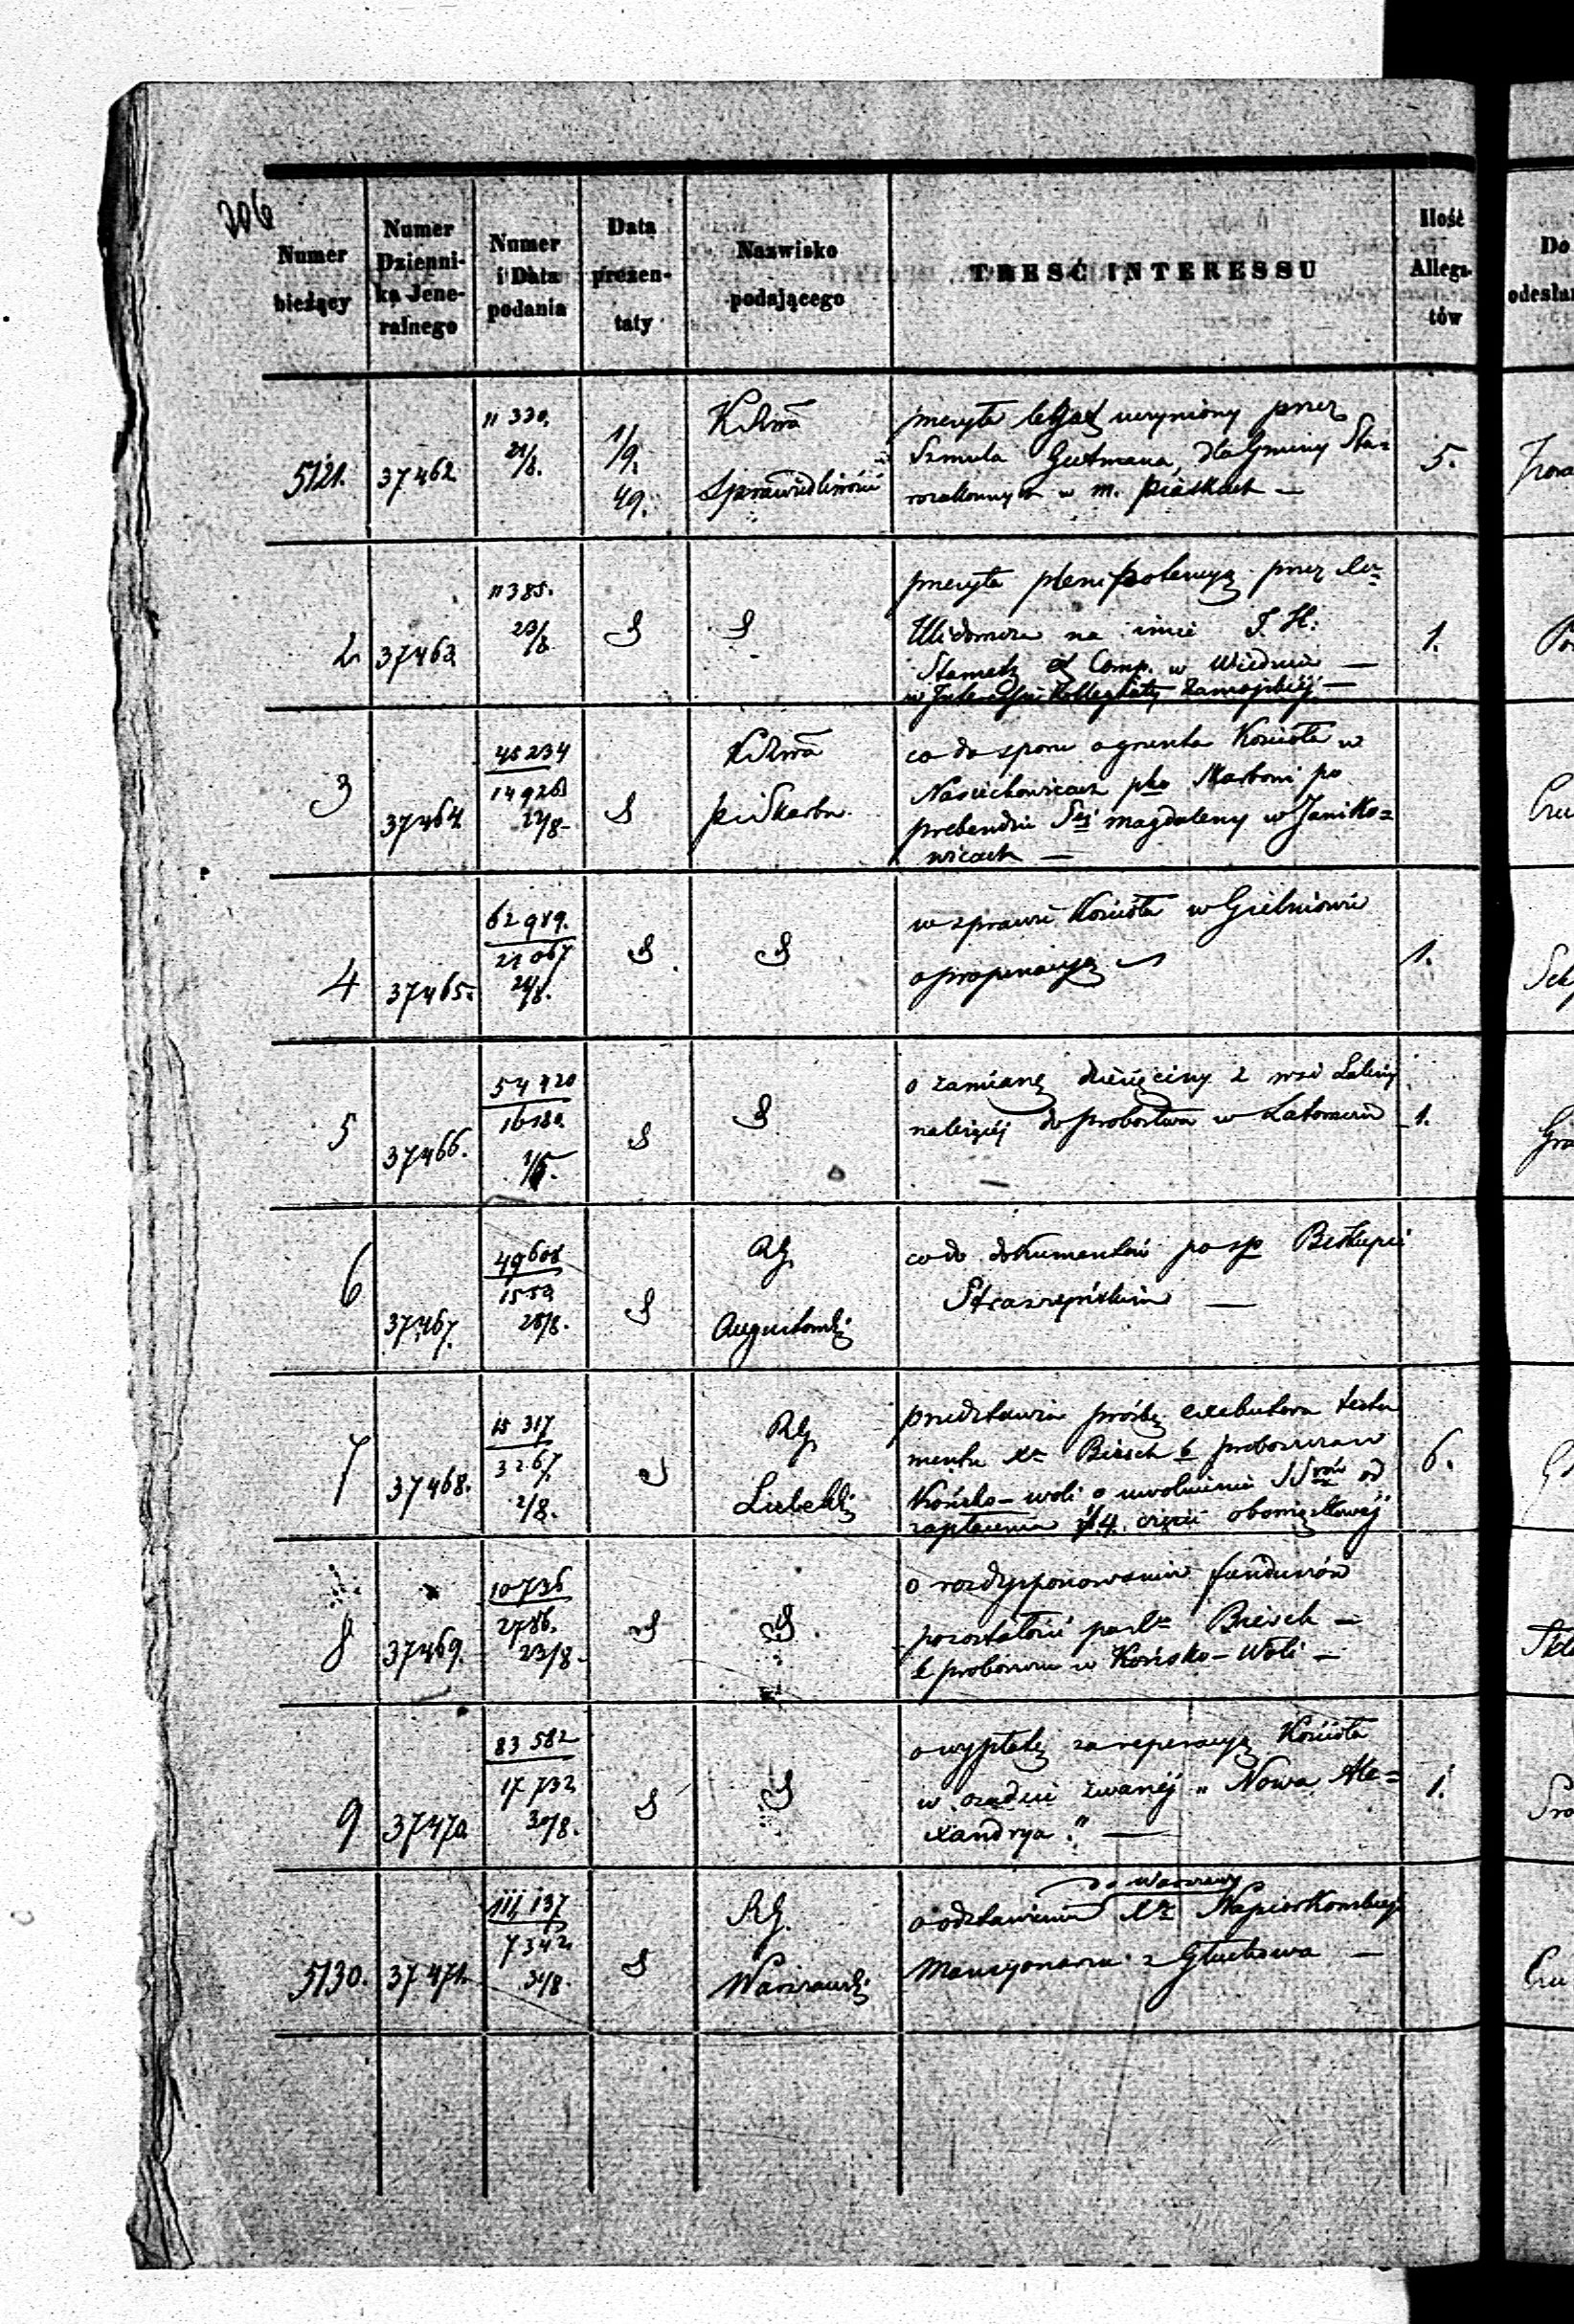 206
Numer bieżący
Numer Dzienni- ka Jene- ralnego
Numer i Data podania
Data prezen- taty
Nazwisko podającego
TREŚĆ INTERESSU
Ilość Allega- tów
Do
odesłan
5121. 37462 11330. 21/8. 1/9. 49. KRwa Sprawiedliwości
przesyła legat uczyniony przez
Szmula Gutmana, dla Gminy Sta=
rozakonnych w m. Piaskach —
5.
2 37463 11385. 23/8
przesyła plenipotencyą przez
na imie J. H:
Stametz et Comp. w Wiedniu —
w Kollegiaty Zamojskiéj —
1.
3 37464 45234 14926 22/8 KRwa p i Skarbu
co do sporu o grunta Kościoła w
Nasiechowicach pko
prebendzie Sej Magdaleny w Janiko=
wicach —
4 37465. 62989. 21067 24/8.
w sprawie Kościoła w Gielniowie
o propinacyą
1.
5 37466. 54720 16180
o zamianę dziesięciny z wsi
należącej do probostwa w Latowiczu
1.
6 37467. 49608 1553 28/8. RG Augustowski
co do dokumentów po śp Biskupie
Straszyńskim —
7 37468. 15317 3267. 2/8. RG Lubelski
przedstawia prośbę exekutora testa
mentu Xa Biesch b proboszcza w
Końsko-woli o uwolnienie SSrów od
zapłacenia 1/4. części obowiązkowéj
6.
8 37469. 10736 2786. 23/8.
o rozdysponowanie funduszów
pozostałości po Xu Biesch —
b proboszczu w Końsko-Woli —
9 37470 83582 17732 30/8.
o wypłatę za reperacyą Kościoła
w osadzie zwanéj „Nowa Ale=
xandrya." —
1.
5130. 37471. 111137 7342 31/8. RG. Warszawski
do Warszawy
o odstawienie Xa Napiorkowskiego
Mansyonarza z Głuchowa —